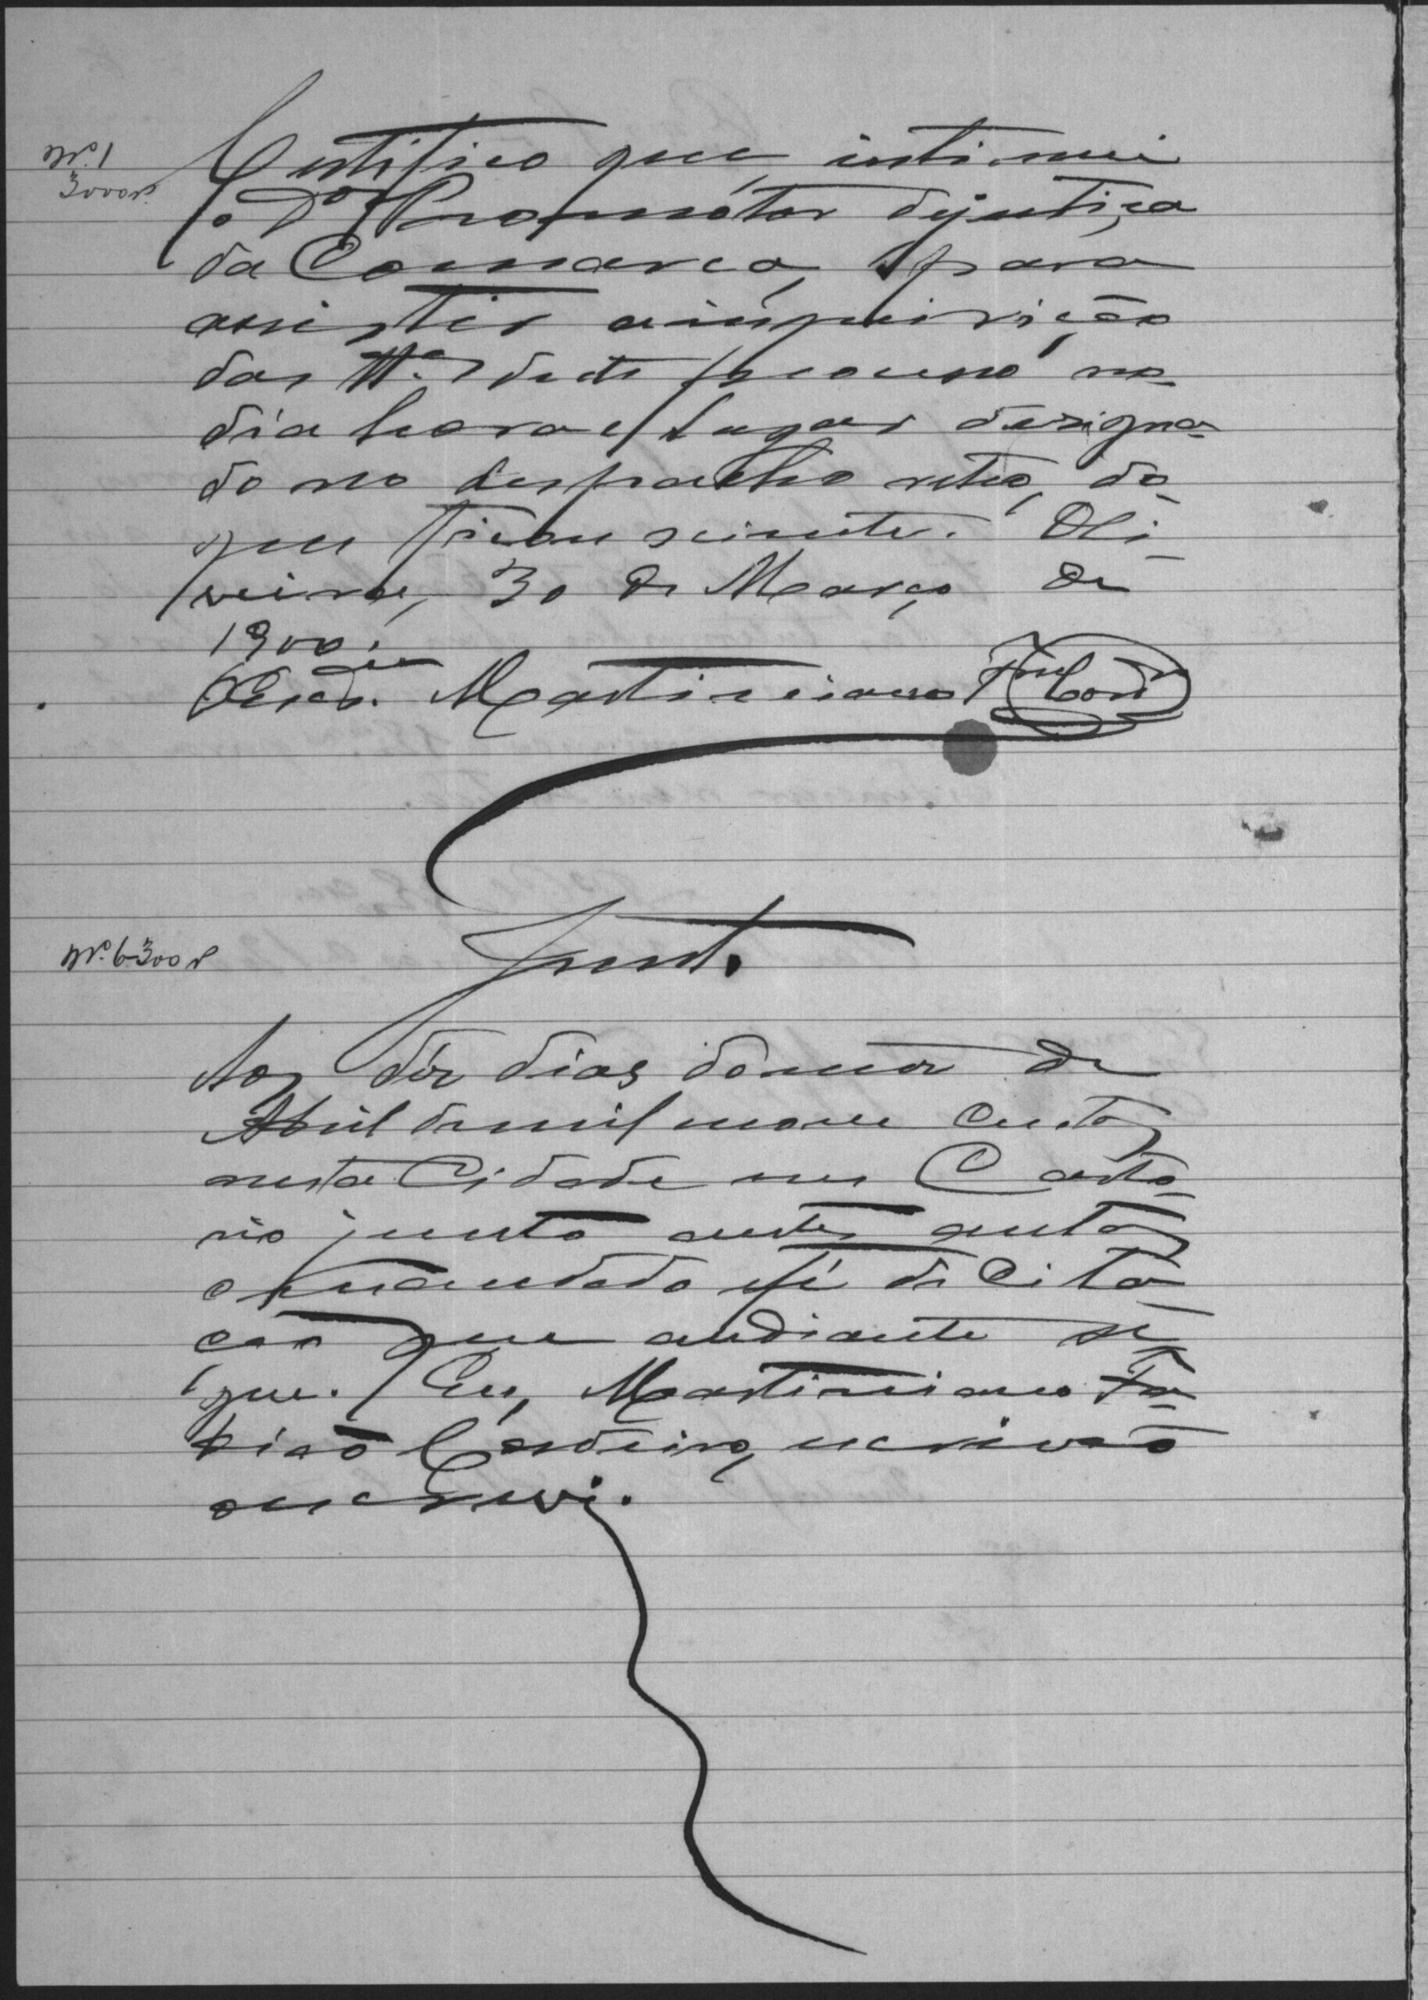 Nº 1
3000 r.
Certifico que intimei
o Dor Promotor dejustiça
da Comarca, para
assistir ainquirição
das ttas deste processo no
dia hora e lugar designa-
do no despacho retro, do
que ficou sciente. Oli-
veira, 30 de Março de
1900.
O Escram Martiniano
Junt.
Nº 6 300 r
Aos dez dias do mez de
Abril de mil nove centos
nesta Cidade meu Carto-
rio junto a estes autos
o mandado e fé de cita
ção que audiante se
gue. Eu, Martiniano Fa-
bião Cordeiro, escrivão
o escrevi.